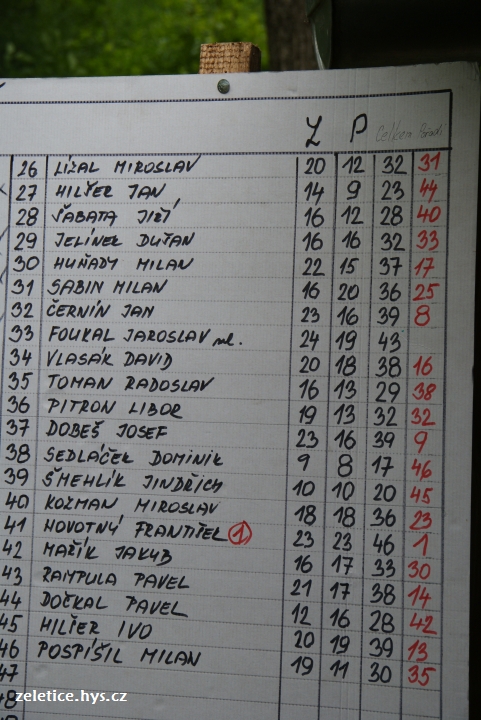 Z P Celkem
26 LÍZAL MIROSLAV 20 12 32 31
27 HILŠER JAN 14 9 23 44
28 ŠABATA JIŘÍ 16 12 28 40
29 JELÍNEK DUŠAN 16 16 32 33
30 HUŇADY MILAN 22 15 37 17
31 SABIN MILAN 16 20 36 25
32 ČERNÍN JAN 23 16 39 8
33 FOUKAL JAROSLAV ml. 24 19 43
34 VLASÁK DAVID 20 18 38 16
35 TOMAN RADOSLAV 16 13 29 38
36 PITRON LIBOR 19 13 32 32
37 DOBEŠ JOSEF 23 16 39 9
38 SEDLÁČEK DOMINIK 9 8 17 46
39 ŠMEHLÍK JINDŘICH 10 10 20 45
40 KOZMAN MIROSLAV 18 18 36 23
41 NOVOTNÝ FRANTIŠEK 1 23 23 46 1
42 MAŘÍK JAKUB 16 17 33 30
43 RAMPULA PAVEL 21 17 38 14
44 DOČKAL PAVEL 12 16 28 42
45 HILŠER IVO 20 19 39 13
46 POSPÍŠIL MILAN 19 11 30 35
47
48
zeletice.hys.cz